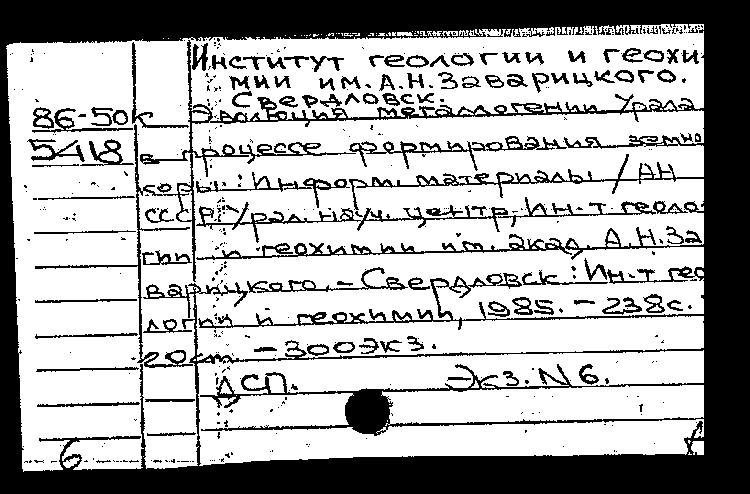 Институт геологии и геохи-
мии им. А.Н. Заварицкого.
Свердловск.
86-50к Эволюция металлогении Урала
5418 в процессе формирования земно
коры : Информ. материалы / АН
СССР, Урал. науч. центр, Ин-т геоло
гии и геохимии им. акад. А.Н. За
варицкого. – Свердловск : Ин-т гео
логии и геохимии, 1985. – 238с.
20см – 300экз.
ДСП. Экз. N 6.
6